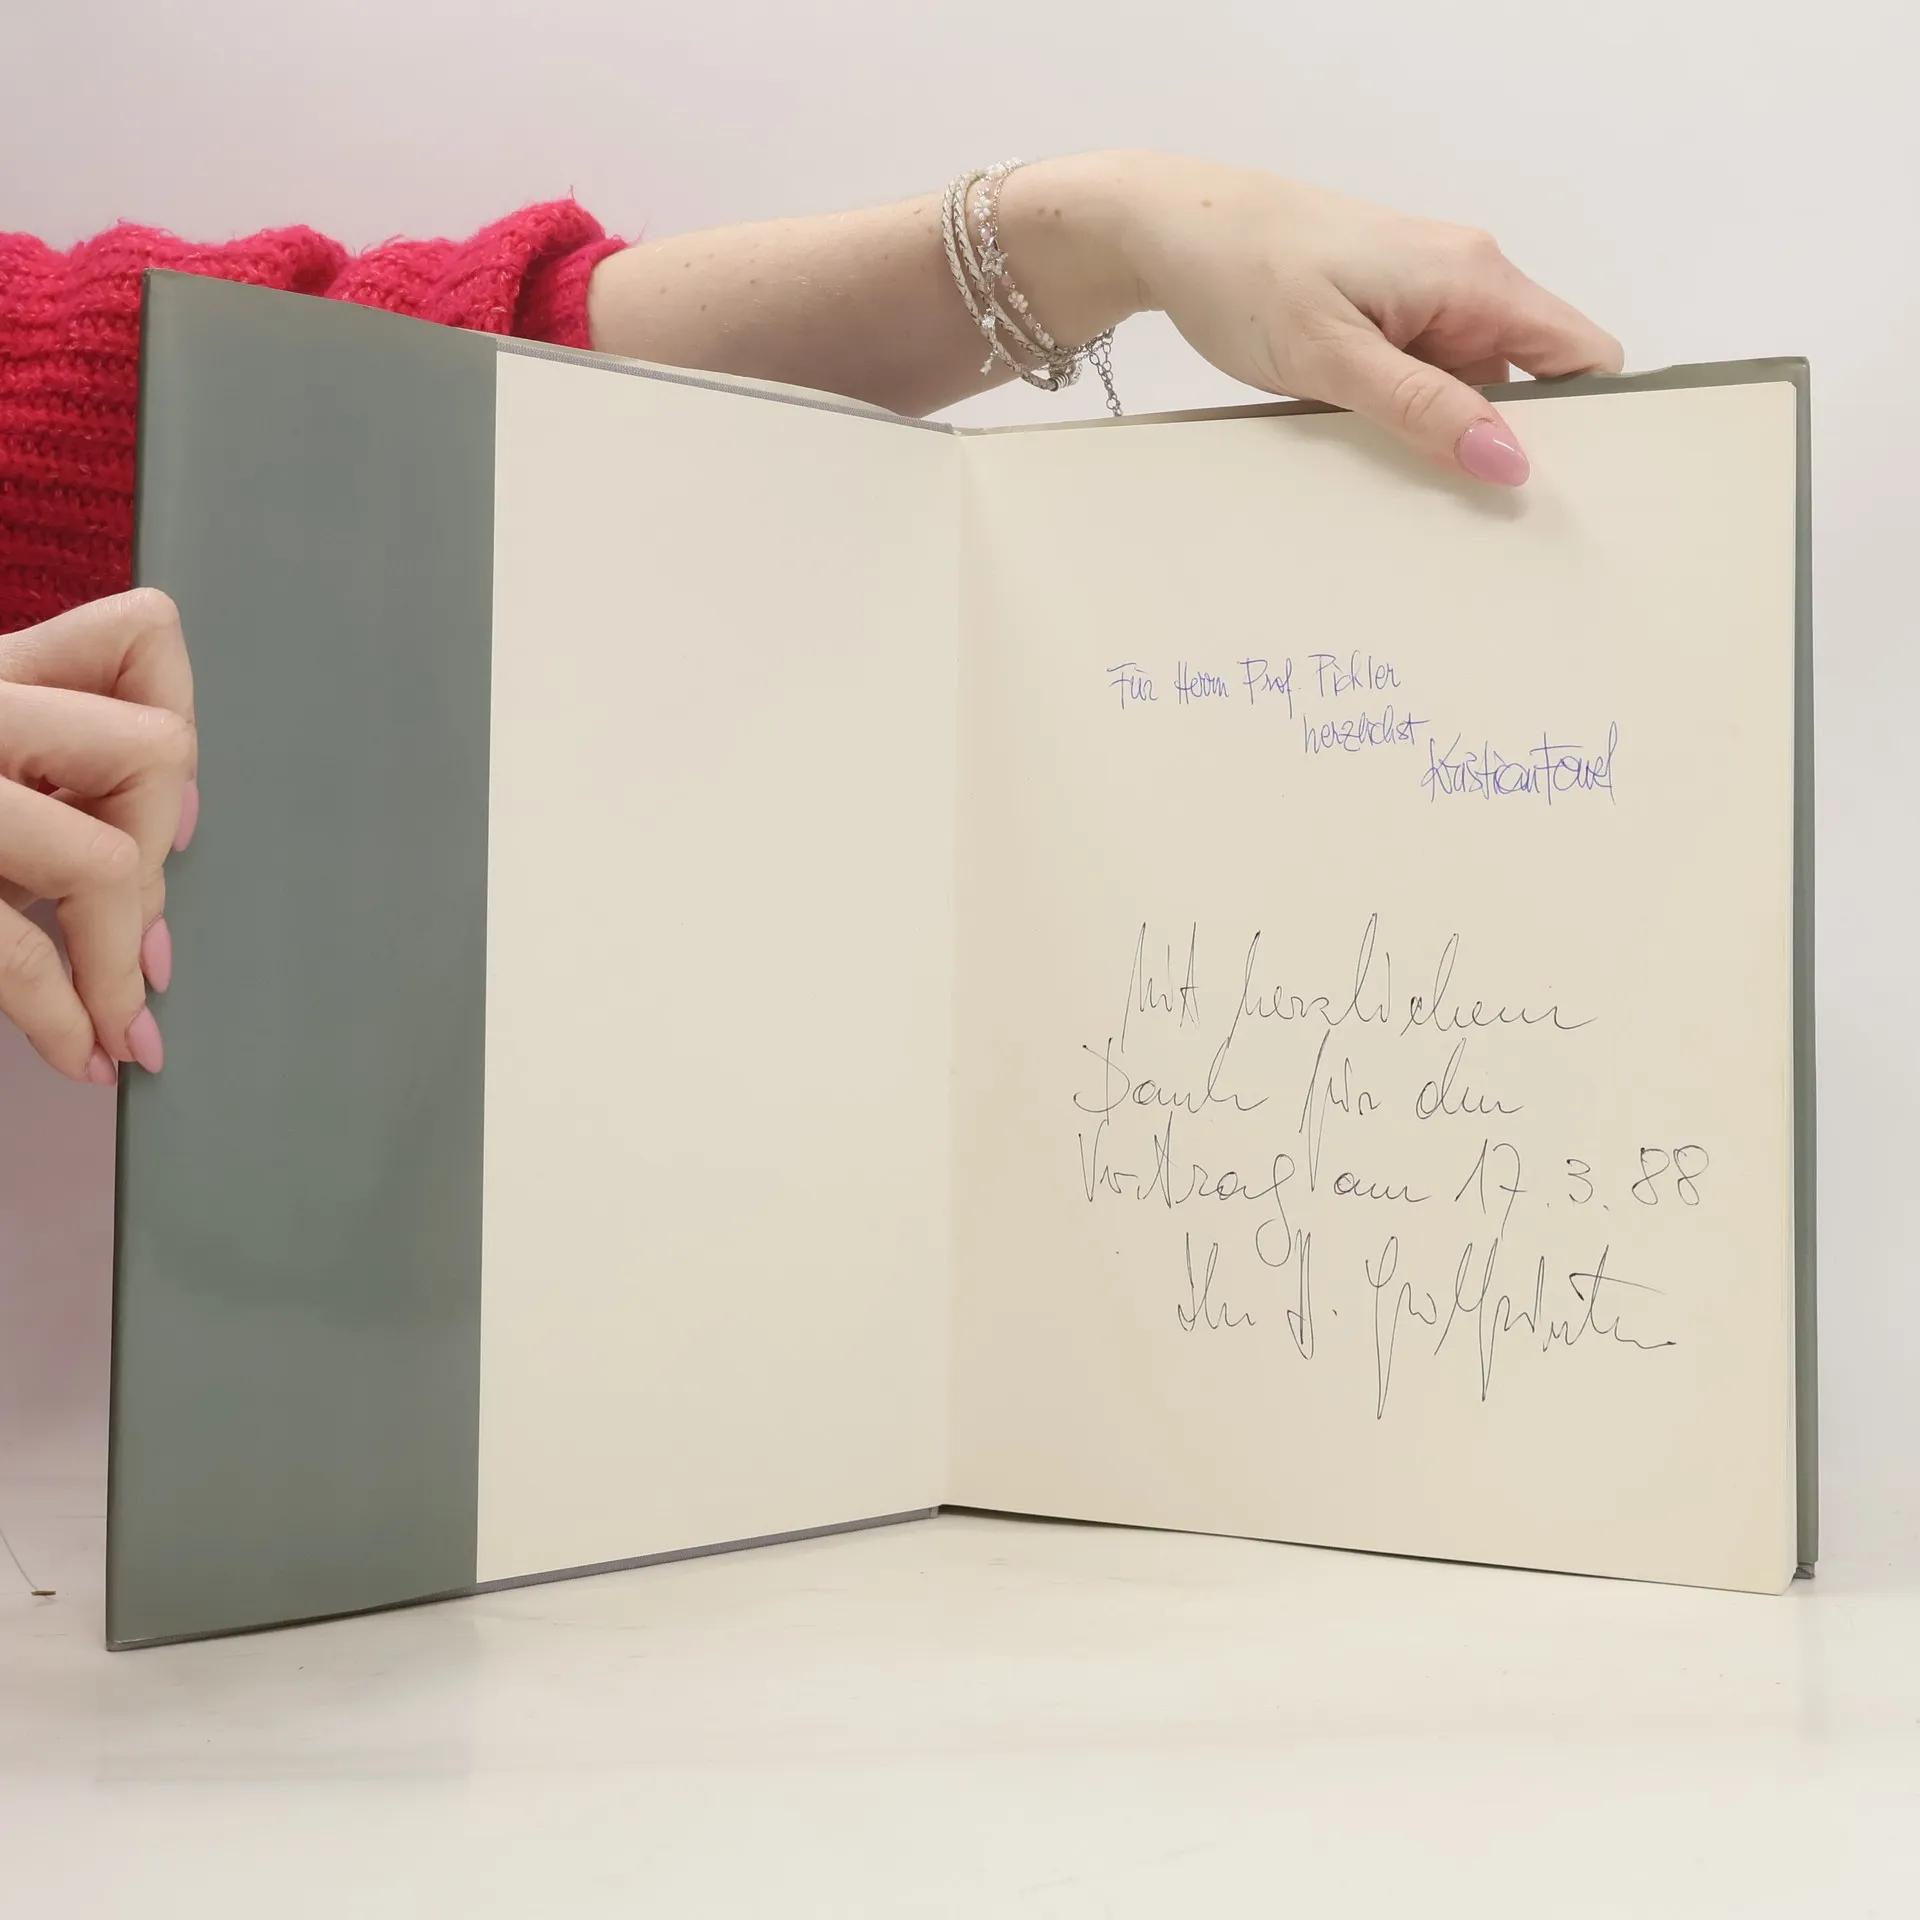 Für Herrn Prof. Pichler
herzlichst
Kristian Fowel
Mit herzlichem
Dank für den
Vortrag am 17.3.88
Ihr H.